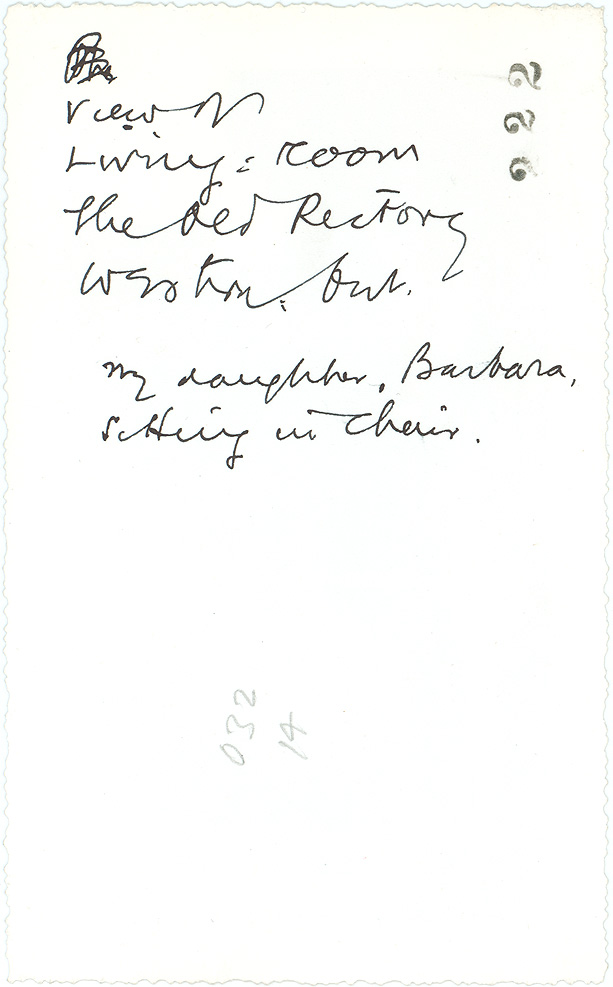 View of
Living: room
the Old Rectory
Weston: Ont.
My daughter, Barbara,
sitting in chair.
222
032
14